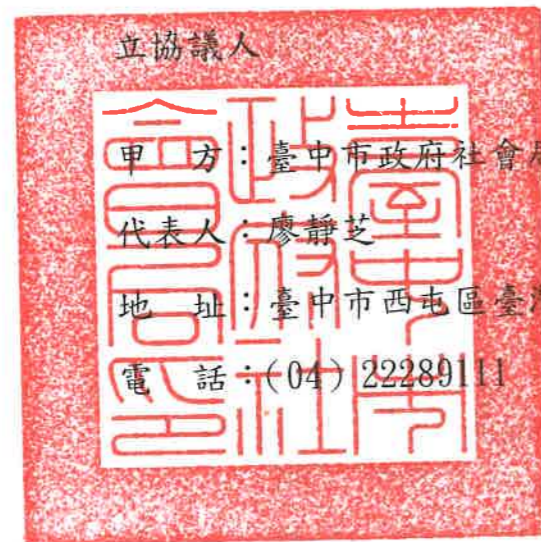 立協議人
甲 方：臺中市政府社會局
代表人：廖靜芝
地 址：臺中市西屯區臺灣
電 話：(04) 22289111
臺中市政府社會局印